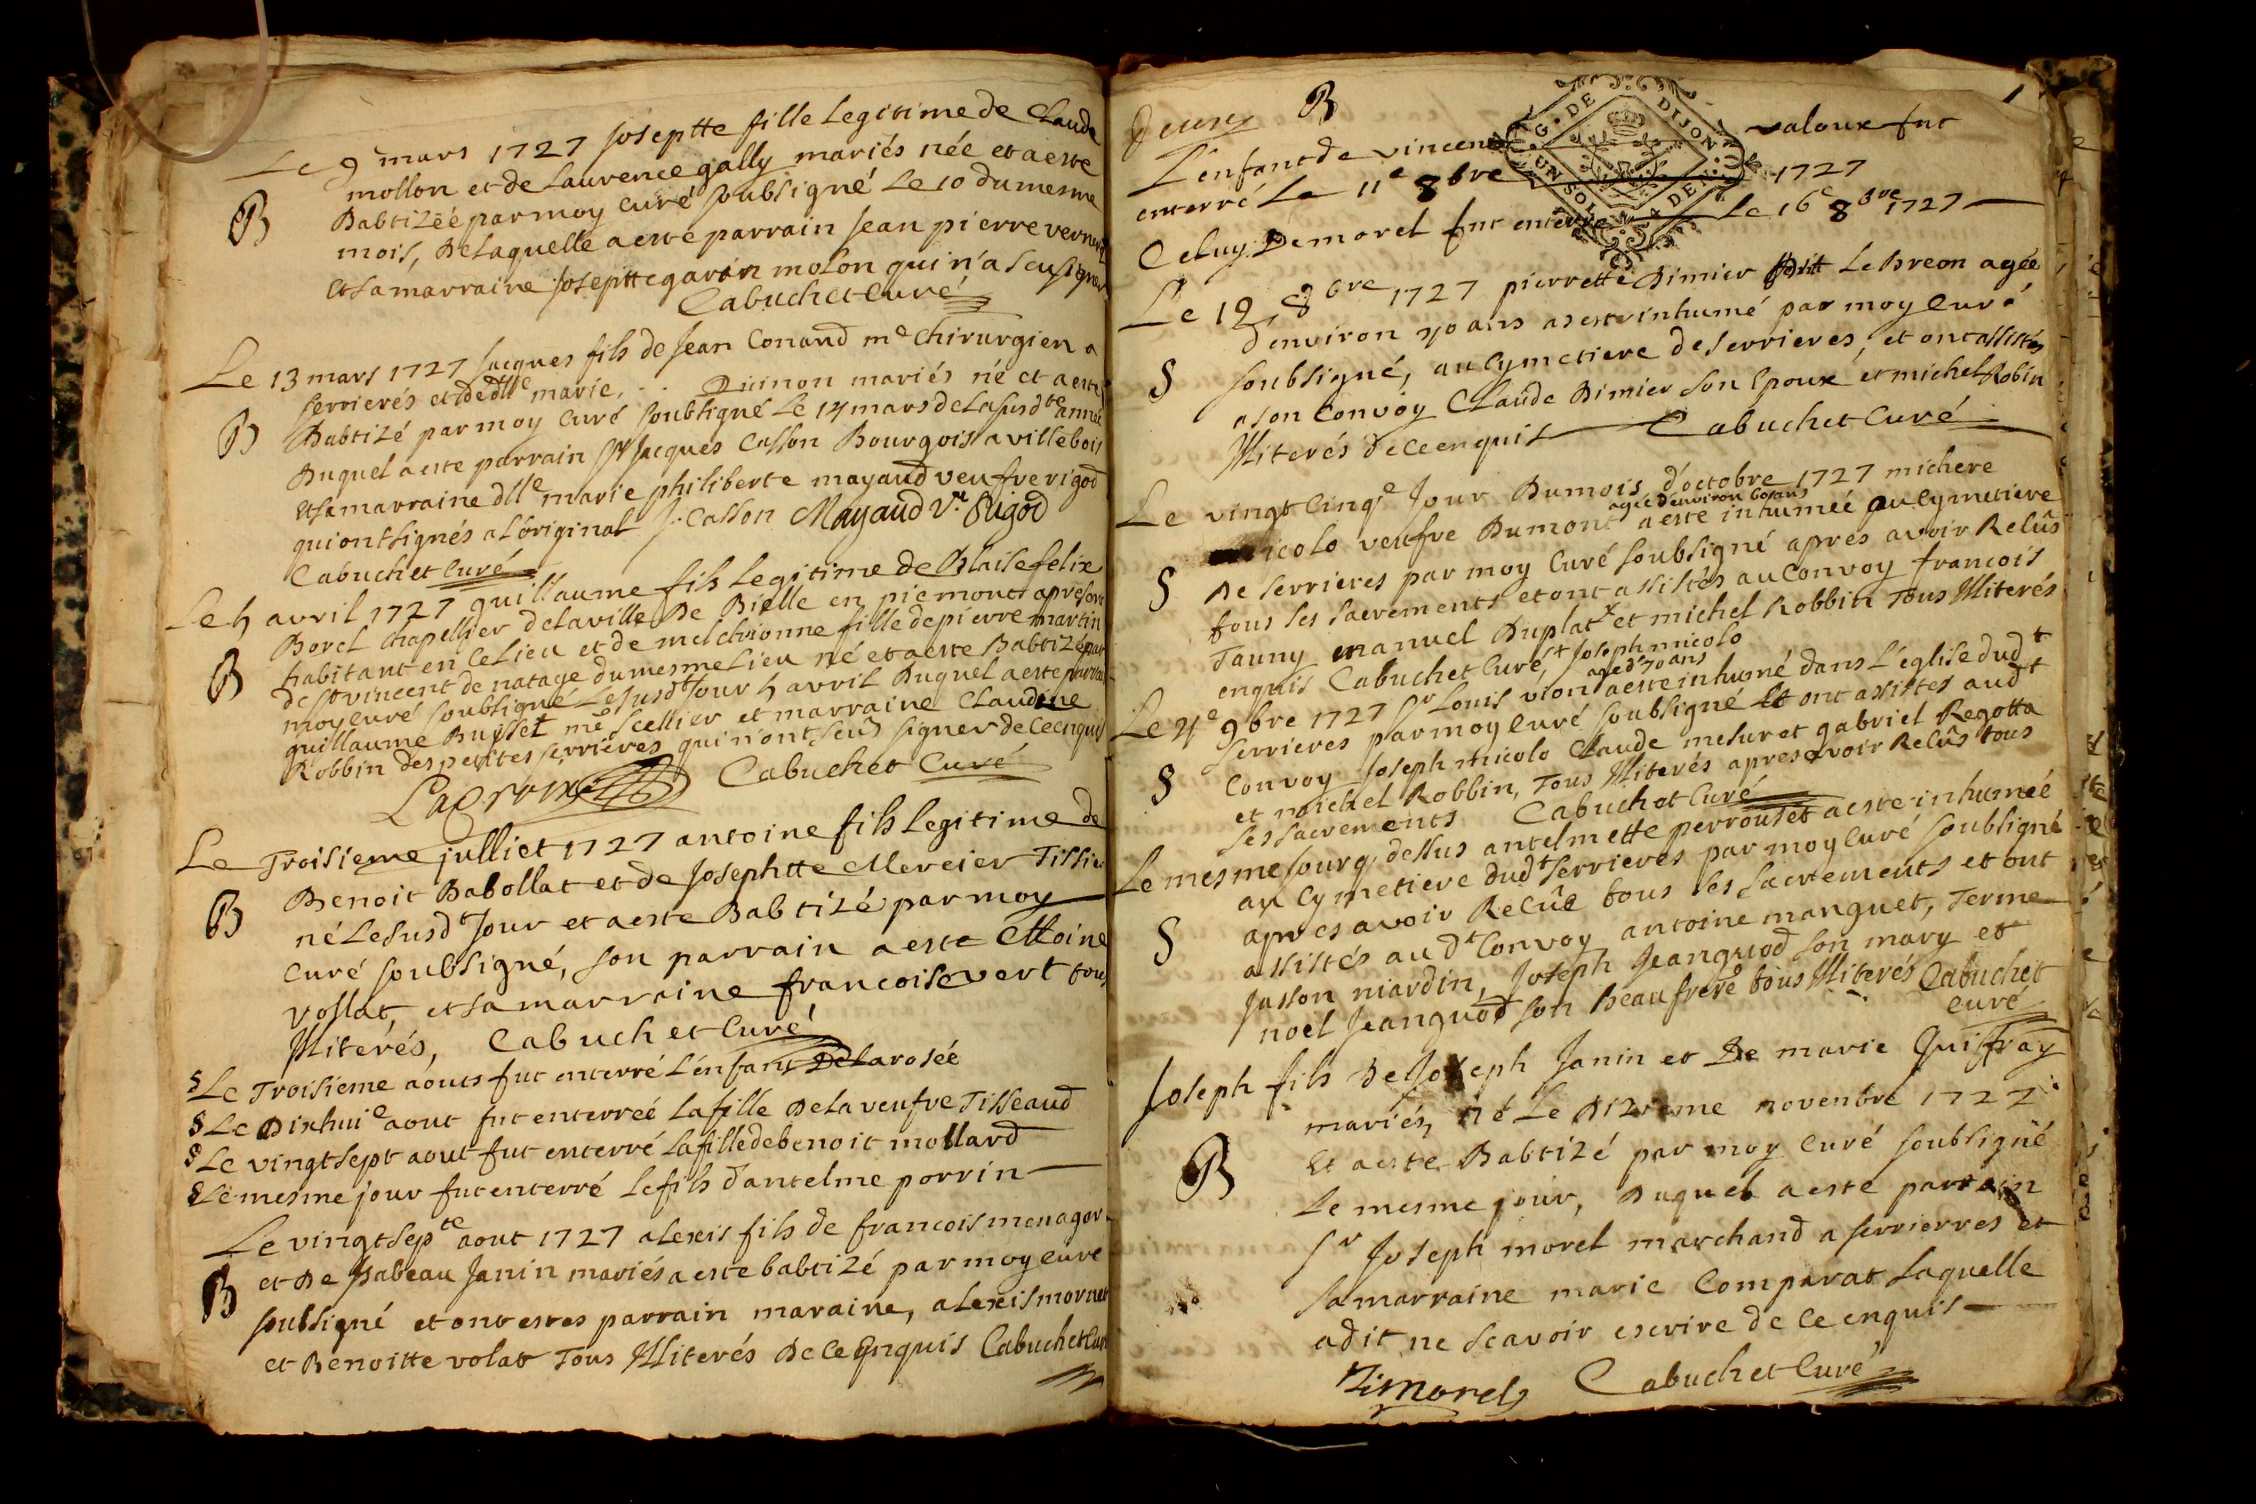 Le 9 mars 1727 Joseptte fille Legitime de Claude
mollon et de Laurence gally mariés née et a esté
B Babtizéé par moy Curé soubsigné Le 10 du mesme
mois, De Laquelle a esté parrain Jean pierre
Et sa marraine Josephtte garin molon qui n'a sçu signer
Cabuchet Curé
Le 13 mars 1727 Jacques fils de Jean Conand me Chirurgien a
serrierés et de dlle marie, . . Quinon mariés né et a esté
B Babtizé par moy Curé soubsigné Le 14 mars de La susdte année
Duquel a esté parrain sr Jacques Casson Bourgois a villebois
Et sa marraine dlle marie philiberte mayaud veufve rigod
qui ont signés a L'original J. Casson Mayaud Ve Rigod
Cabuchet Curé
Le 5 avril 1727 guillaume fils Legitime de Blaise felix
Borel Chapellier de La ville De Bielle en piemont apresent
habitant en Ce Lieu et de melchionne fille de pierre martin
B de st vincent de natage du mesme Lieu né et a esté Babtizé par
moy curé soubsigné Le susdt Jour 5 avril Duquel a esté parrain
guillaume Buysset me scellier et marraine Claudine
Robbin des petites serrières qui n'ont sçeus signer de Ce enquis
Cabuchet Curé
Le Troisieme julliet 1727 antoine fils Legitime de
Benoit Babollat et de Josephtte Mercier Tissier
B né Le susdt Jour et a esté Babtizé par moy
Curé soubsigné, son parrain a esté
vollat, et sa marraine francoise vert tous
Illiterés, Cabuchet Curé
§ Le Troisieme aouts fut enterré L'enfant De Larosée
§ Le Dixhuie aout fut enterreé La fille De La veufve Tisseaud
§ Le vingt sept aout fut enterré La fille de benoit mollard
§ Le mesme jour fut enterré Le fils d'antelme porrin
Le vingt septe aout 1727 alexis fils de francois menager
et De Isabeau Janin mariés a esté babtizé par moy curé
B soubsigné et ont estes parrain maraine, alexis mornet
et Benoitte volat Tous Illiterés De Ce Enquis Cabuchet Curé
deux B 1
G. DE DIJON UN SOL 4 DEN.
L'enfant de vincent valoux fut
enterré Le 11e 8bre 1727
Celuy De morel fut enterré Le 16e 8bre 1727
Le 19 8bre 1727 pierrette Dimier ditt Le Breon agée
d'environ 70 ans a esté inhumé par moy Curé
§ soubsigné, au Cymetiere de serrieres, et ont assistés
a son Convoy Claude Dimier son Epoux et michel Robin
Illiterés de Ce enquis Cabuchet Curé
Le vingt Cinqe Jour Du mois d'octobre 1727 michere
agée d'environ 60 ans
nicolo veufve Dumont a esté inhumeé au Cymetiere
§ De serrieres par moy Curé soubsigné apres avoir Reçus
tous ses sacrements et ont assistés au Convoy francois
Tauny manuel Duplatx et michel Robbin Tous Illiterés
enquis Cabuchet Curé, et Joseph micolo
agé d 70 ans
Le 4e 9bre 1727 sr Louis vion a esté inhumé dans L'église dudt
serrieres par moy Curé soubsigné Et ont assistes audt
§ Convoy Joseph micolo Claude mesur et gabriel Regotta
et michel Robbin, Tous Illiterés apres avoir Reçus tous
ses sacrements Cabuchet Curé
Le mesme Jour q dessus antelmette perrouset a esté inhumeé
au Cymetiere dudt serrieres par moy Curé soubsigné
§ apres avoir Reçue tous ses sacrements et ont
assistés audt Convoy antoine manguet, Terme
Jasson niardin, Joseph Jeanguod son mary et
noel Jeanguod son Beaufrere tous Illiterés Cabuchet
curé
Joseph fils De Joseph Janin et De marie Guiffray
mariés, né Le Dizieme novenbre 1727
B Et a esté Babtizé par moy Curé soubsigné
Le mesme jour, Duquel a esté parrain
sr Joseph morel marchand a serrierres et
sa marraine marie Comparat Laquelle
a dit ne scavoir escrire de Ce enquis
J morel Cabuchet Curé